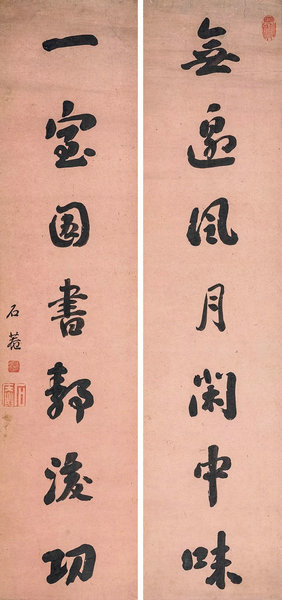 無邊風月閑中味
一室圖書静後功
石菴